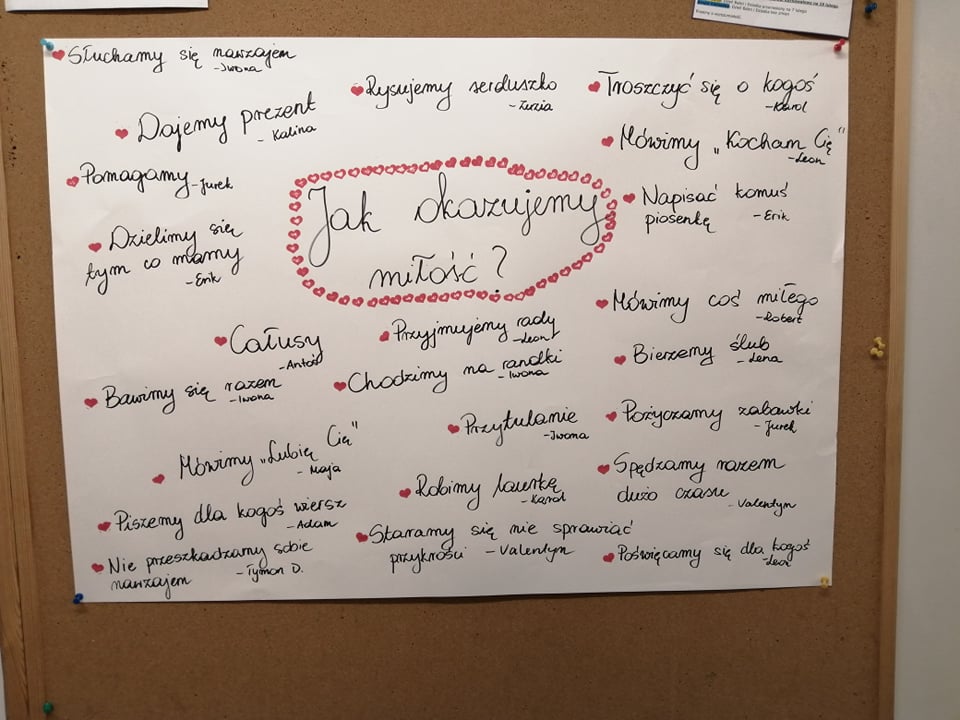 Słuchamy się nawzajem
-Iwona
Rysujemy serduszko
-Zuzia
Troszczyć się o kogoś
-Karol
Dajemy prezent
- Kalina
Mówimy „Kocham Cię"
-Leon
Pomagamy -Jurek
Napisać komuś
piosenkę - Erik
Jak okazujemy
miłość?
Dzielimy się
tym co mamy
-Erik
Mówimy coś miłego
-Robert
Całusy
-Antoś
Przyjmujemy rady
-Leon
Bierzemy ślub
-Lena
Bawimy się razem
-Iwona
Chodzimy na randki
-Iwona
Przytulanie
-Iwona
Pożyczamy zabawki
-Jurek
Mówimy „Lubię Cię"
- Maja
Robimy laurkę
-Karol
Spędzamy razem
dużo czasu - Valentyn
Piszemy dla kogoś wiersz
-Adam
Staramy się nie sprawiać
przykrości - Valentyn
Nie przeszkadzamy sobie
nawzajem -Tymon D.
Poświęcamy się dla kogoś